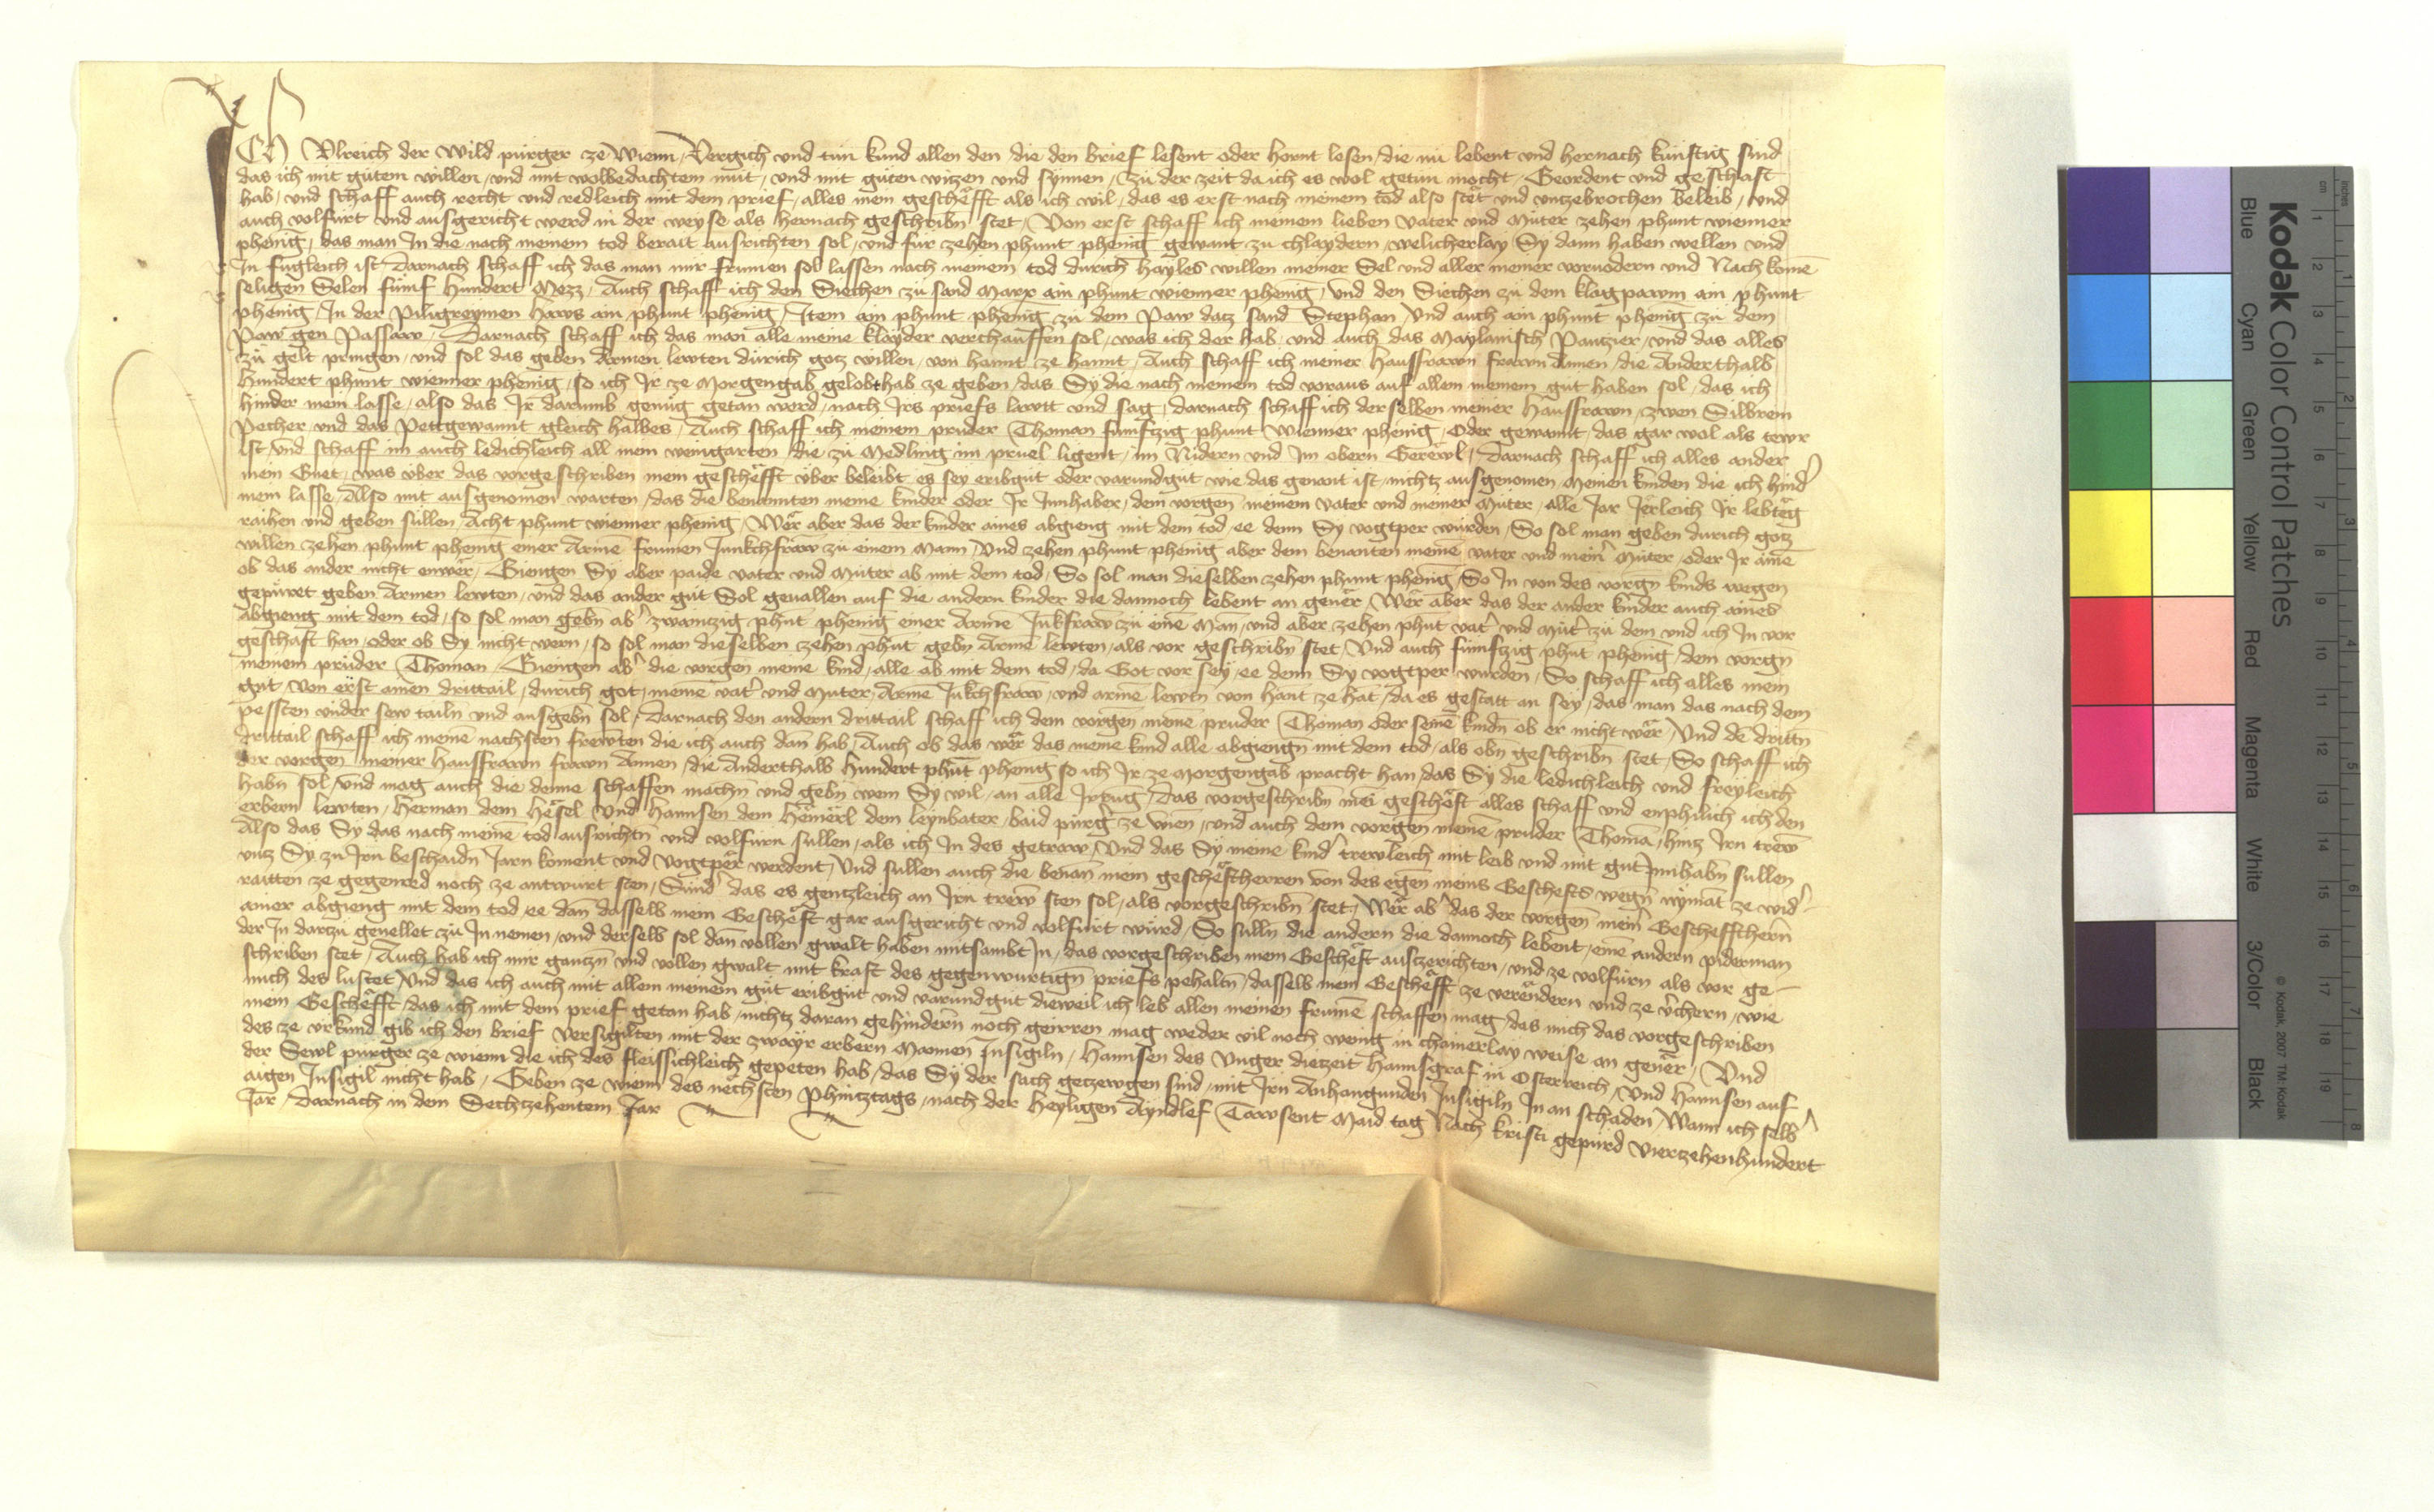 Ich Vlreich der Wild purger ze Wienn Vergich und tun kund allen den die den brief lesent oder hornt lesen die nu lebent und hernach kunftig sind
das ich mit gutem willen und mit wolbedachtem mut und mit guten witzen und synnen zu der zeit da ich es wol getun mocht Geordent und geschaft
hab und schaff auch recht und redleich mit dem prief alles mein geschefft als ich wil das es erst nach meinem tod also stet und unzebrochen beleib und
auch volfurt und ausgericht werd in der weyse als hernach geschribn stet Von erst schaff ich meinem lieben Vater und Muter zehen phunt wienner
phenig das man In die nach meinem tod berait ausrichten sol und fur zehen phunt phenig gewant zu chlaydern welicherlay Sy dann haben wellen und
In fugleich ist Darnach schaff ich das man mir frumen sol lassen nach meinem tod durich hayles willen meiner Sel und aller meiner vorvodern und Nachkome
seligen Selen funf hundert Mezz Auch schaff ich den Siechen zu sand Marx ain phunt wienner phenig und den Siechen zu dem klagpawm ain phunt
phenig In der Pilligreymen Haws ain phunt phenig Item ain phunt phenig zu dem Paw datz sand Stephan Und auch ain phunt phenig zu dem
Paw gen Passaw Darnach schaff ich das man alle meine klayder verchauffen sol was ich der hab und auch das Maylanisch Pantzier und das alles
zu gelt pringen und sol das geben Armen lewten durich gotz willen von hannt ze hannt Auch schaff ich meiner Hausfrawn frawn Annen die Anderthalb
hundert phunt wienner phenig so ich Ir ze Morgengab gelobt hab ze geben das Sy die nach meinem tod voraus auf allem meinem gut haben sol das ich
hinder mein lasse also das Ir darumb genug getan werd nach Irs priefs lawtt und sag darnach schaff ich derselben meiner Hausfrawn zwen Silbrein
Pecher und das Pettgewannt gleich halbes Auch schaff ich meinem pruder Thoman funfzig phunt Wienner phenig Oder gewannt das gar wol als tewr
ist und schaff im auch ledichleich all mein weingarten die zu Medling im pruel ligent im Nidern und Im obern Gerewt Darnach schaff ich alles ander
mein Guet was uber das vorgeschriben mein geschefft uber beleibt es sey eribgut oder varundgut wie das genant ist nichtz ausgenomen Meinen kinden die ich hinder
mein lasse Also mit ausgenomen warten das die benannten meine kinder oder Ir Innhaber dem vorgen meinem Vater und meiner Muter alle Jar Jerleich Ir lebteg
raihen und geben sullen Acht phunt wienner phenig Wer aber das der kinder aines abgieng mit dem tod ee denn Sy vogtper wurden So sol man geben durich gotz
willen zehen phunt phenig einer Arme frumen Junkchfraw zu einem Mann Und zehen phunt phenig aber dem benanten meine vater und meinr Muter oder Ir aine
ob das ander nicht enwer Giengen Sy aber paide vater und Muter ab mit dem tod So sol man dieselben zehen phunt phenig So In von des vorgn kinds wegen
gepuret geben Armen lewten und das ander gut Sol gevallen auf die andern kinder die dannoch lebent an gever Wer aber das der ander kinder auch aines
abgieng mit dem tod so sol man gebn abr zwaintzig phut phenig einer Arme Jukfraw zu eine Man und aber zehen phut vatr und Mutr zu dem und ich In vor
geschaft han oder ob Sy nicht wern so sol man dieselben zehen phut gebn Arme lewten als vor geschribn stet Und auch funfzig phut phenig dem vorgn
meinem pruder Thoman Giengen abr die vorgen meine kind alle ab mit dem tod da Got vor sey ee denn Sy vogtper wurden So schaff ich alles mein
gut von erst ainen drittail durich got meine vatr und Muter Arme Jukchfraw und arme lewtn von hant ze hat da es gestatt an sey das man das nach dem
pessten under sew tailn und ausgebn sol Darnach den andern drittail schaff ich dem vorgen meine pruder Thoman oder seine kindn ob er nicht wer Und de drittn
drittail schaff ich meine nachsten frewten die ich auch dan hab Auch ob das wer das meine kind alle abgiengn mit dem tod als obn geschribn stet So schaff ich
der vorgen meiner Hausfrawn frawn Annen die Anderthalb hundert phut phenig so ich Ir ze Morgengab pracht han das Sy die ledichleich und freyleich
habn sol und mag auch die denne schaffen machn und gebn wem Sy wil an alle Irrung Das vorgeschribn mei gescheft alles schaff und enphilich ich den
erbern lewten Herman dem Hesel Und Hannsen dem leynbater baid purgr ze wien und auch dem vorgen meine pruder Thoma hinz Irn trew
Also das Sy das nach meine tod ausrichtn und volfurn sullen als ich In des getraw Und das Sy meine kindr trewleich mit leib und mit gut Innhabn sullen
unz Sy zu Irn beschaidn Jarn koment und Vogtper werdent Und sullen auch die benan mein geschefftherren von des egen meins Geschefts wegn nymat ze widr
raitten ze gegenred noch ze antwurt sten Sundr das es gentzleich an Irn trew sten sol als vorgeschribn stet Wer abr das der vorgen meinr Gescheftherrn
ainer abgieng mit dem tod ee dan dasselb mein Gescheft gar ausgericht und volfurt wurd So sulln die andern die dannoch lebent eine andern piderman
der In darzu gevellet zu In nemen und derselb sol dan vollen gwalt haben mitsambt In das vorgeschriben mein Gescheft auszerichten und ze volfurn als vor ge-
schriben stet Auch hab ich mir gantzn und vollen gwalt mit kraft des gegenwurtign priefs pehaltn dasselb mein Gescheft ze verendern und ze wie
mich des lustet Und das ich auch mit allem meinem gut eribgut und varundgut dieweil ich leb allen meinen frume schaffen mag des mich das vorgeschriben
mein Geschefft das ich mit dem prief getan hab nichtz daran gehindern noch geirren mag weder vil noch wenig in chainerlay weise an gever Und
des ze urkund gib ich den brief Versigilten mit der zwayr erbern Mannen Insigiln Hannsen des Unger diezeit Hannsgraf in Osterreich Und Hannsen auf
der Sewl purger ze wienn die ich des fleissichleich gepeten hab das Sy der sach getzewgen sind mit Irn Anhangunden Insigiln In an schaden Wann ich selb
aigen Insigil nicht hab Geben ze wienn des nechsten Phintztags nach der Heyligen Ayndlef Tawsent Maid tag Nach kristi gepurd Vierzehenhundert
Jar Darnach in dem Sechtzehentem Jar
Kodak Color Control Patches
Blue Cyan Green Yellow Red Magenta White 3/Color Black
© Kodak, 2007 TM: Kodak
inches 1 2 3 4 5 6 7 8
cm 1 2 3 4 5 6 7 8 9 10 11 12 13 14 15 16 17 18 19